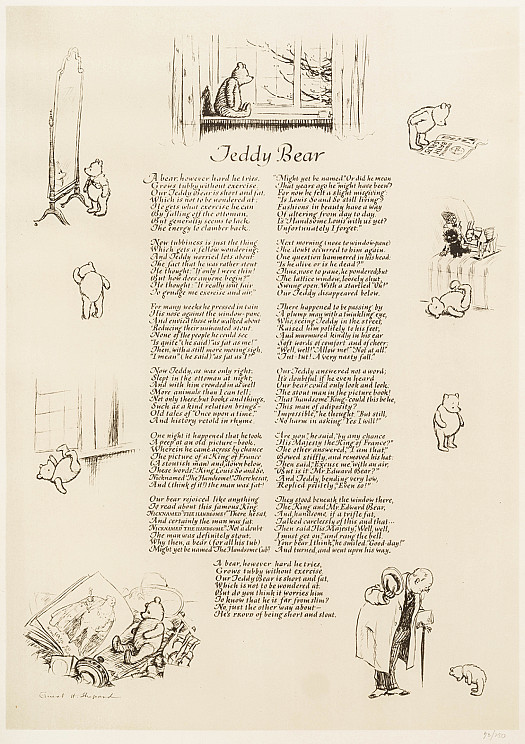 Teddy Bear
A bear, however hard he tries,
Grows tubby without exercise.
Our Teddy Bear is short and fat,
Which is not to be wondered at;
He gets what exercise he can
By falling off the ottoman,
But generally seems to lack
The energy to clamber back.
Now tubbiness is just the thing
Which gets a fellow wondering;
And Teddy worried lots about
The fact that he was rather stout.
He thought: "If only I were thin!
But how does anyone begin?"
He thought: "It really isn't fair
To grudge me exercise and air."
For many weeks he pressed in vain
His nose against the window-pane,
And envied those who walked about
Reducing their unwanted stout.
None of the people he could see
"Is quite" (he said) "as fat as me!"
Then, with a still more moving sigh,
"I mean" (he said) "as fat as I!"
Now Teddy, as was only right,
Slept in the ottoman at night,
And with him crowded in as well
More animals than I can tell;
Not only these, but books and things,
Such as a kind relation brings-
Old tales of "Once upon a time,"
And history retold in rhyme.
One night it happened that he took
A peep at an old picture-book,
Wherein he came across by chance
The picture of a King of France
(A stoutish man) and, down below,
These words: "King Louis So and So,
Nicknamed 'The Handsome!'" There he sat,
And (think of it!) the man was fat!
Our bear rejoiced like anything
To read about this famous King,
Nicknamed "The Handsome." There he sat,
And certainly the man was fat.
Nicknamed "The Handsome." Not a doubt
The man was definitely stout.
Why then, a bear (for all his tub)
Might yet be named "The Handsome Cub!"
"Might yet be named." Or did he mean
That years ago he "might have been"?
For now he felt a slight misgiving:
"Is Louis So and So still living?
Fashions in beauty have a way
Of altering from day to day.
Is 'Handsome Louis' with us yet?
Unfortunately I forget."
Next morning (nose to window-pane)
The doubt occurred to him again.
One question hammered in his head:
"Is he alive or is he dead?"
Thus, nose to pane, he pondered; but
The lattice window, loosely shut,
Swung open. With a startled "Oh!"
Our Teddy disappeared below.
There happened to be passing by
A plump man with a twinkling eye,
Who, seeing Teddy in the street,
Raised him politely to his feet,
And murmured kindly in his ear
Soft words of comfort and of cheer:
"Well, well!" "Allow me!" "Not at all."
"Tut-tut! A very nasty fall."
Our Teddy answered not a word;
It's doubtful if he even heard.
Our bear could only look and look:
The stout man in the picture-book!
That 'handsome' King - could this be he,
This man of adiposity?
"Impossible," he thought. "But still,
No harm in asking. Yes I will!"
"Are you," he said, "by any chance
His Majesty the King of France?"
The other answered, "I am that,"
Bowed stiffly, and removed his hat;
Then said, "Excuse me," with an air,
"But is it Mr Edward Bear?"
And Teddy, bending very low,
Replied politely, "Even so!"
They stood beneath the window there,
The King and Mr. Edward Bear,
And, handsome, if a trifle fat,
Talked carelessly of this and that...
Then said His Majesty, "Well, well,
I must get on," and rang the bell.
"Your bear, I think," he smiled. "Good-day!"
And turned, and went upon his way.
A bear, however hard he tries,
Grows tubby without exercise.
Our Teddy Bear is short and fat,
Which is not to be wondered at.
But do you think it worries him
To know that he is far from slim?
No, just the other way about-
He's proud of being short and stout.
Ernest H. Shepard